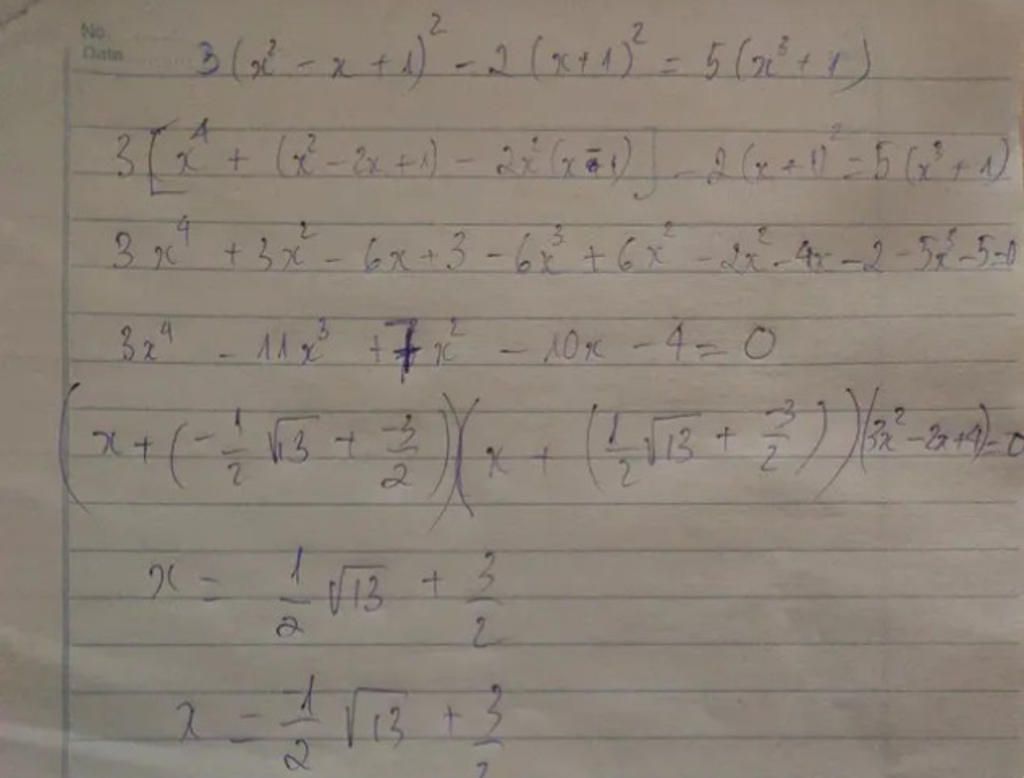 No.
Date
3(x² - x + 1)² - 2(x+1)² = 5(x³ + 1)
3[x⁴ + (x² - 2x + 1) - 2x²(x - 1)] - 2(x + 1)² = 5(x³ + 1)
3x⁴ + 3x² - 6x + 3 - 6x³ + 6x² - 2x² - 4x - 2 - 5x³ - 5 = 0
3x⁴ - 11x³ + 7x² - 10x - 4 = 0
(x + (-1/2 √13 + -3/2))(x + (1/2 √13 + -3/2))(3x² - 2x + 4) = 0
x = 1/2 √13 + 3/2
x = -1/2 √13 + 3/2